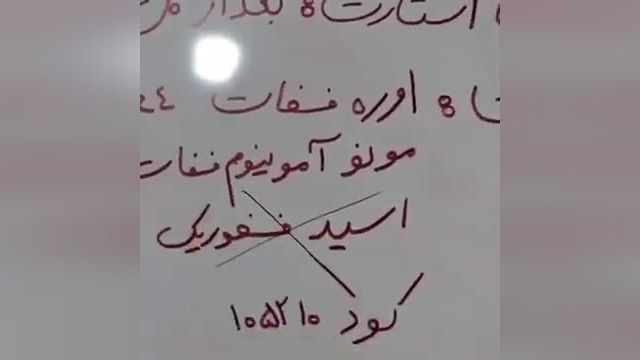 استارت ه بعد از
ه اوره فسفات ٤٤
مونو آمونیوم فسفات
اسید فسفوریک
کود ۱۰۵۲۱۰